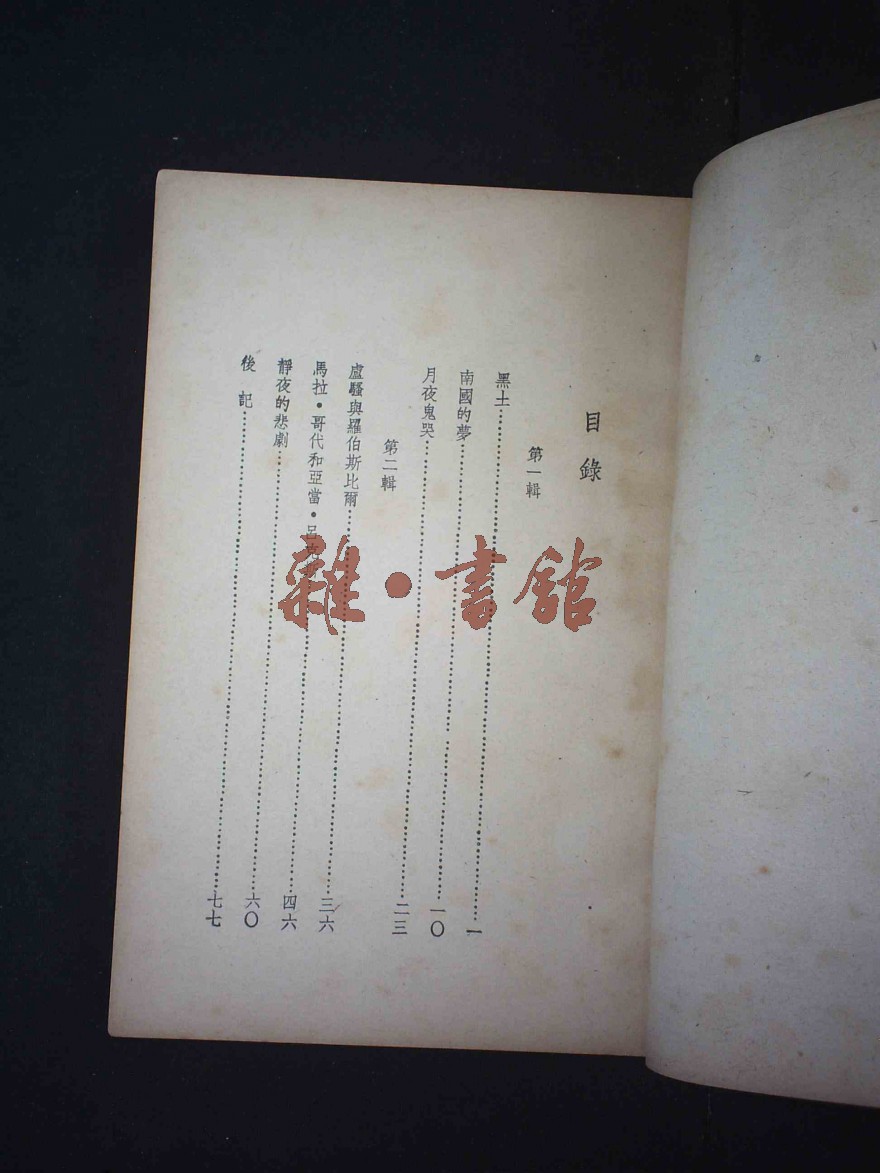 目錄
第一輯
黑土……一
南國的夢……一〇
月夜鬼哭……二三
第二輯
盧騷與羅伯斯比爾……三六
馬拉•哥代和亞當•呂……四六
靜夜的悲劇……六〇
後記……七七
雜•書館